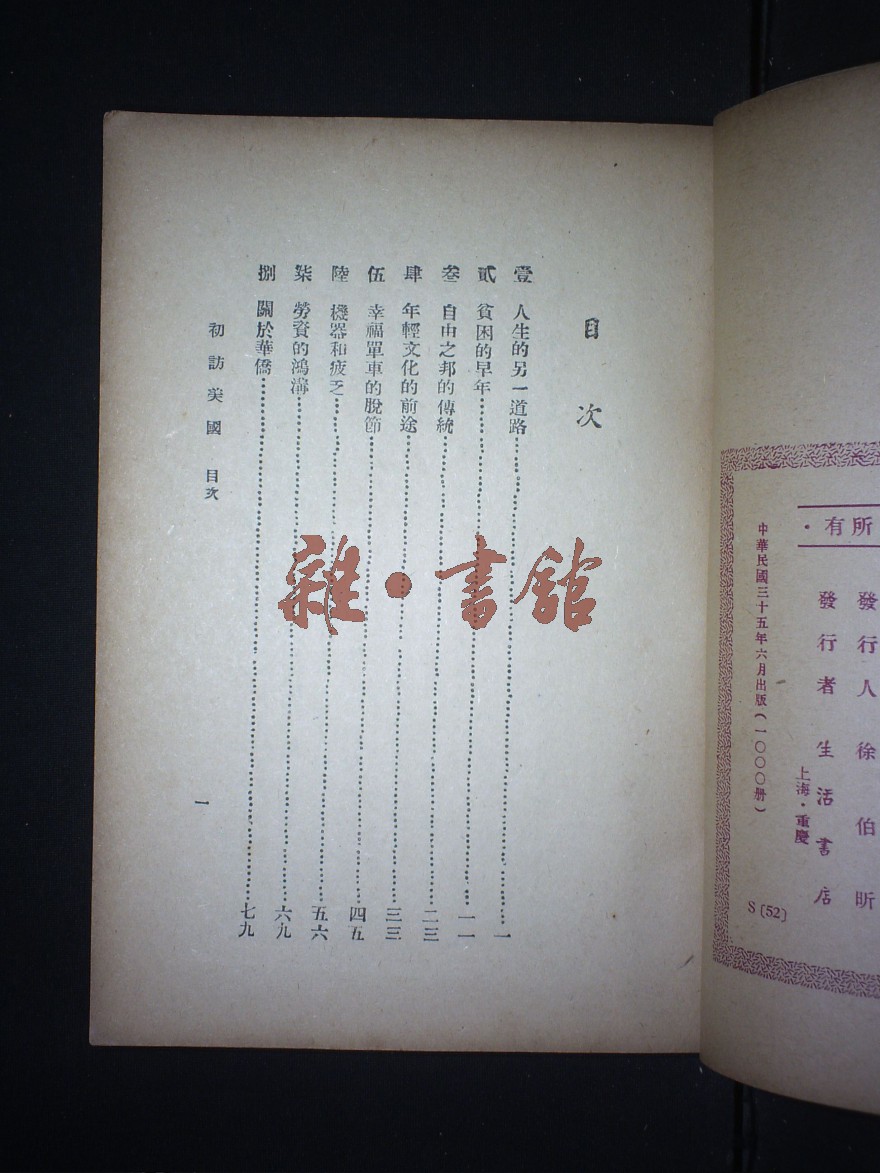 有所
發行人 徐伯昕
發行者 生活書店
上海・重慶
中華民國三十五年六月出版(一〇〇〇册)
S〔52〕
目次
壹 人生的另一道路 一
貳 貧困的早年 一一
叁 自由之邦的傳統 二三
肆 年輕文化的前途 三三
伍 幸福單車的脫節 四五
陸 機器和疲乏 五六
柒 勞資的鴻溝 六九
捌 關於華僑 七九
初訪美國 目次
一
雜・書館